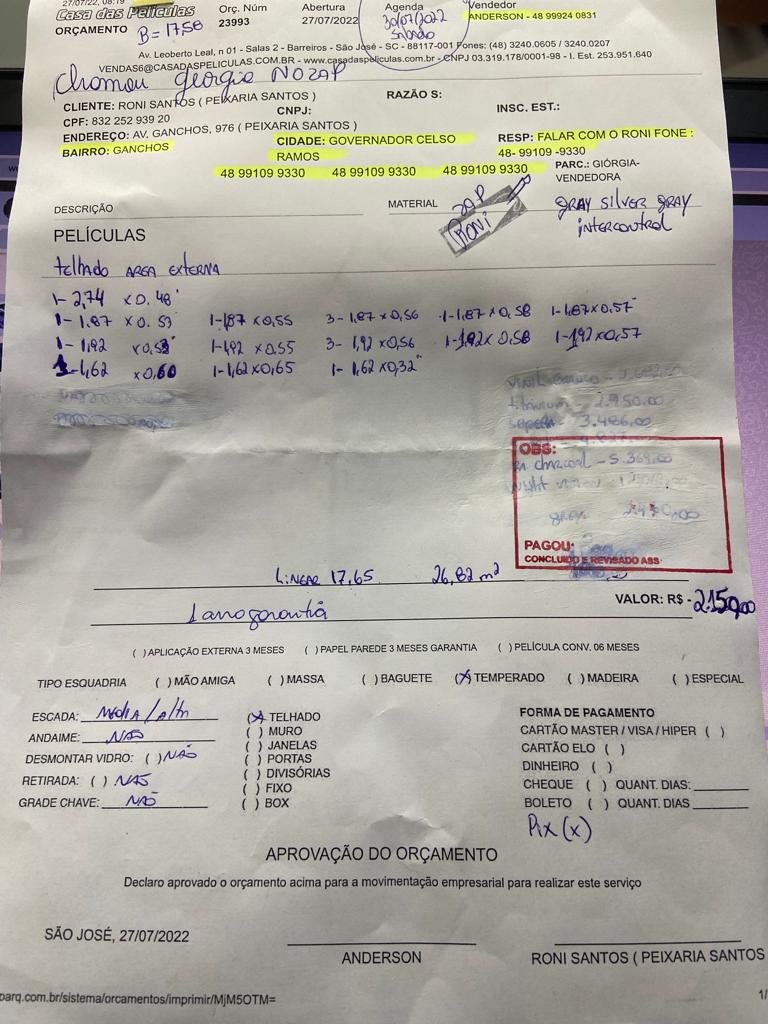 27/07/22, 08:19
Casa das Películas
Orç. Núm
Abertura
Agenda
Vendedor
ORÇAMENTO
B=17,58
23993
27/07/2022
30/07/2022
Sábado
ANDERSON - 48 99924 0831
Av. Leoberto Leal, n 01 - Salas 2 - Barreiros - São José - SC - 88117-001 Fones: (48) 3240.0605 / 3240.0207
VENDAS6@CASADASPELICULAS.COM.BR - www.casadaspeliculas.com.br - CNPJ 03.319.178/0001-98 - I. Est. 253.951.640
Chamou Georgia NO ZAP
CLIENTE: RONI SANTOS ( PEIXARIA SANTOS )
RAZÃO S:
CPF: 832 252 939 20
CNPJ:
INSC. EST.:
ENDEREÇO: AV, GANCHOS, 976 ( PEIXARIA SANTOS )
BAIRRO: GANCHOS
CIDADE: GOVERNADOR CELSO
RAMOS
RESP: FALAR COM O RONI FONE :
48- 99109 -9330
48 99109 9330 48 99109 9330 48 99109 9330
PARC.: GIÓRGIA-
VENDEDORA
DESCRIÇÃO
MATERIAL
ZAP
Roni
GRAY SILVER GRAY
INTERCONTROL
PELÍCULAS
telhado AREA EXTERNA
1- 2,74 x0.48
1- 1,87 x0.53 1-1,87 x0,55 3- 1,87 x0,56 1-1,87 x 0,58 1-1,87x0,57
1- 1,92 x0,53 1-1,92 x0,55 3- 1,92 x0,56 1-1,92x 0,58 1-1,92x0,57
1-1,62 x0,60 1-1,62x0,65 1- 1,62x0,32
titanium - 2.950,00
3.486,00
OBS:
charcoal - 5.364,00
gray
PAGOU:
CONCLUIDO E REVISADO ASS
Linear 17,65 26,82 m²
1 ano garantia
VALOR: R$ - 2.150,00
( ) APLICAÇÃO EXTERNA 3 MESES ( ) PAPEL PAREDE 3 MESES GARANTIA ( ) PELÍCULA CONV. 06 MESES
TIPO ESQUADRIA ( ) MÃO AMIGA ( ) MASSA ( ) BAGUETE (X) TEMPERADO ( ) MADEIRA ( ) ESPECIAL
ESCADA: Média/alta
ANDAIME: NÃO
DESMONTAR VIDRO: ( ) NÃO
RETIRADA: ( ) NÃO
GRADE CHAVE: NÃO
(X) TELHADO
( ) MURO
( ) JANELAS
( ) PORTAS
( ) DIVISÓRIAS
( ) FIXO
( ) BOX
FORMA DE PAGAMENTO
CARTÃO MASTER / VISA / HIPER ( )
CARTÃO ELO ( )
DINHEIRO ( )
CHEQUE ( ) QUANT. DIAS:
BOLETO ( ) QUANT. DIAS
Pix (x)
APROVAÇÃO DO ORÇAMENTO
Declaro aprovado o orçamento acima para a movimentação empresarial para realizar este serviço
SÃO JOSÉ, 27/07/2022
ANDERSON
RONI SANTOS ( PEIXARIA SANTOS
parq.com.br/sistema/orcamentos/imprimir/MjM5OTM=
1/